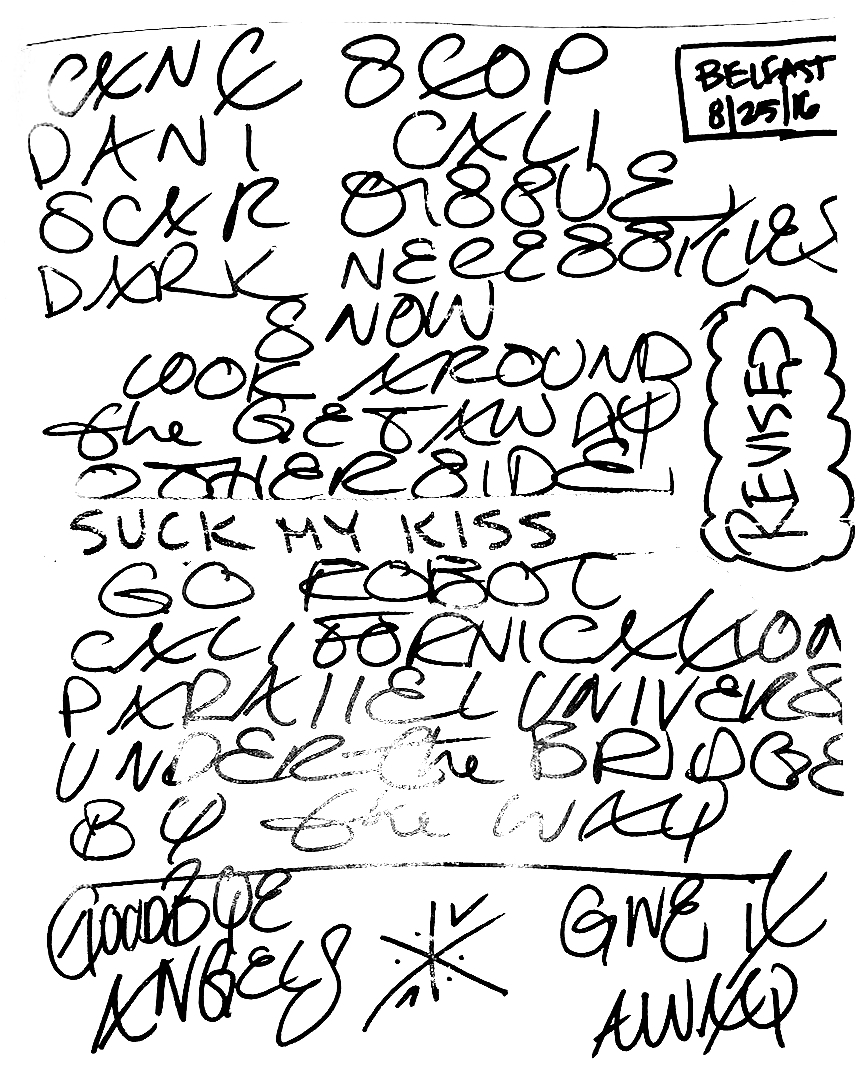 CANT STOP
BELFAST
8/25/16
DANI CALI
SCAR TISSUE
DARK NECESSITIES
SNOW
LOOK AROUND
the GETAWAY
OTHERSIDE
REVISED
SUCK MY KISS
GO ROBOT
CALIFORNICATION
PARAllEL UNIVERSE
UNDER the BRIDGE
BY the WAY
GOODBYE
ANGELS
GIVE it
AWAY